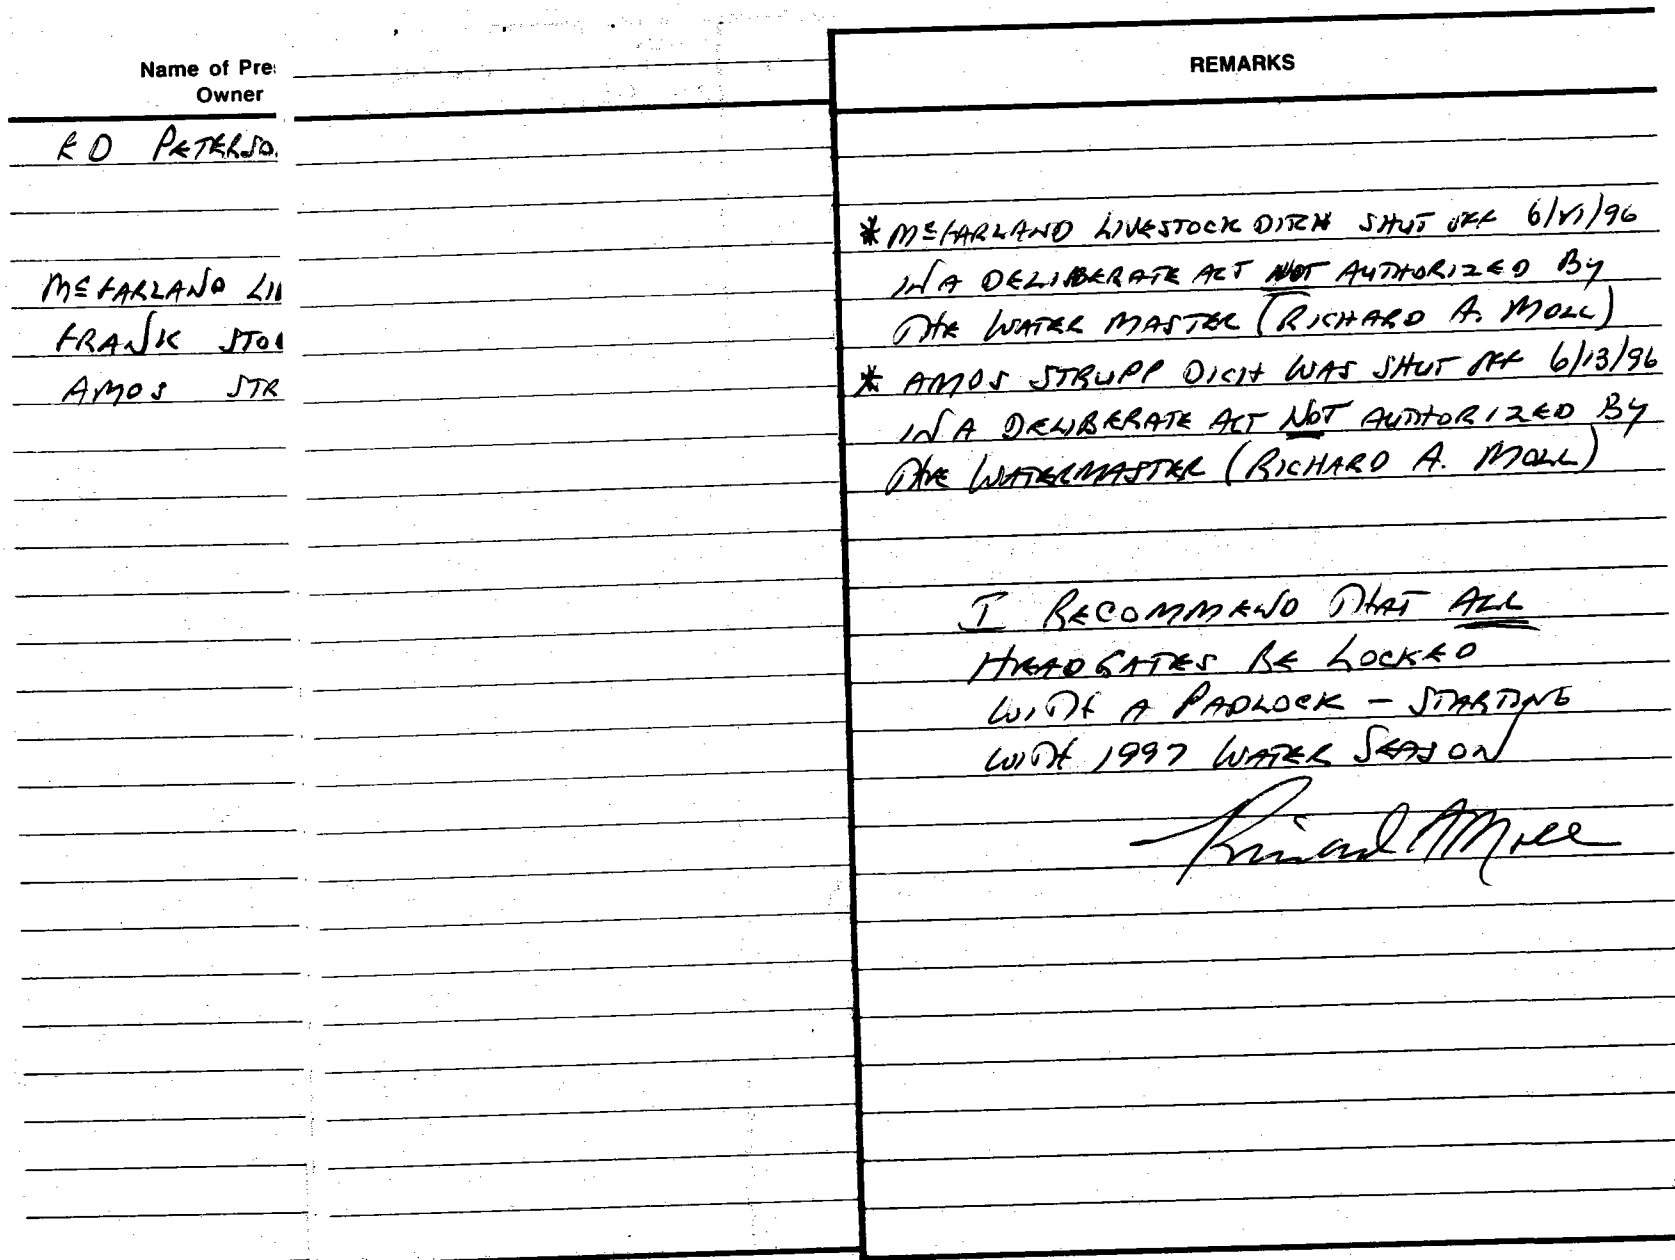 Name of Pre
Owner
REMARKS
PETERSO
* McFARLAND LIVESTOCK DITCH SHUT OFF
IN A DELIBERATE ACT NOT AUTHORIZED BY
THE WATER MASTER (RICHARD A. MOLL)
* AMOS STRUPP DICH WAS SHUT OFF 6/13/96
IN A DELIBERATE ACT NOT AUTHORIZED BY
THE WATERMASTER (RICHARD A. MOLL)
McFARLAND LI
FRANK STO
AMOS STR
I RECOMMEND THAT ALL
HEADGATES BE LOCKED
WITH A PADLOCK – STARTING
WITH 1997 WATER SEASON
Richard A Moll